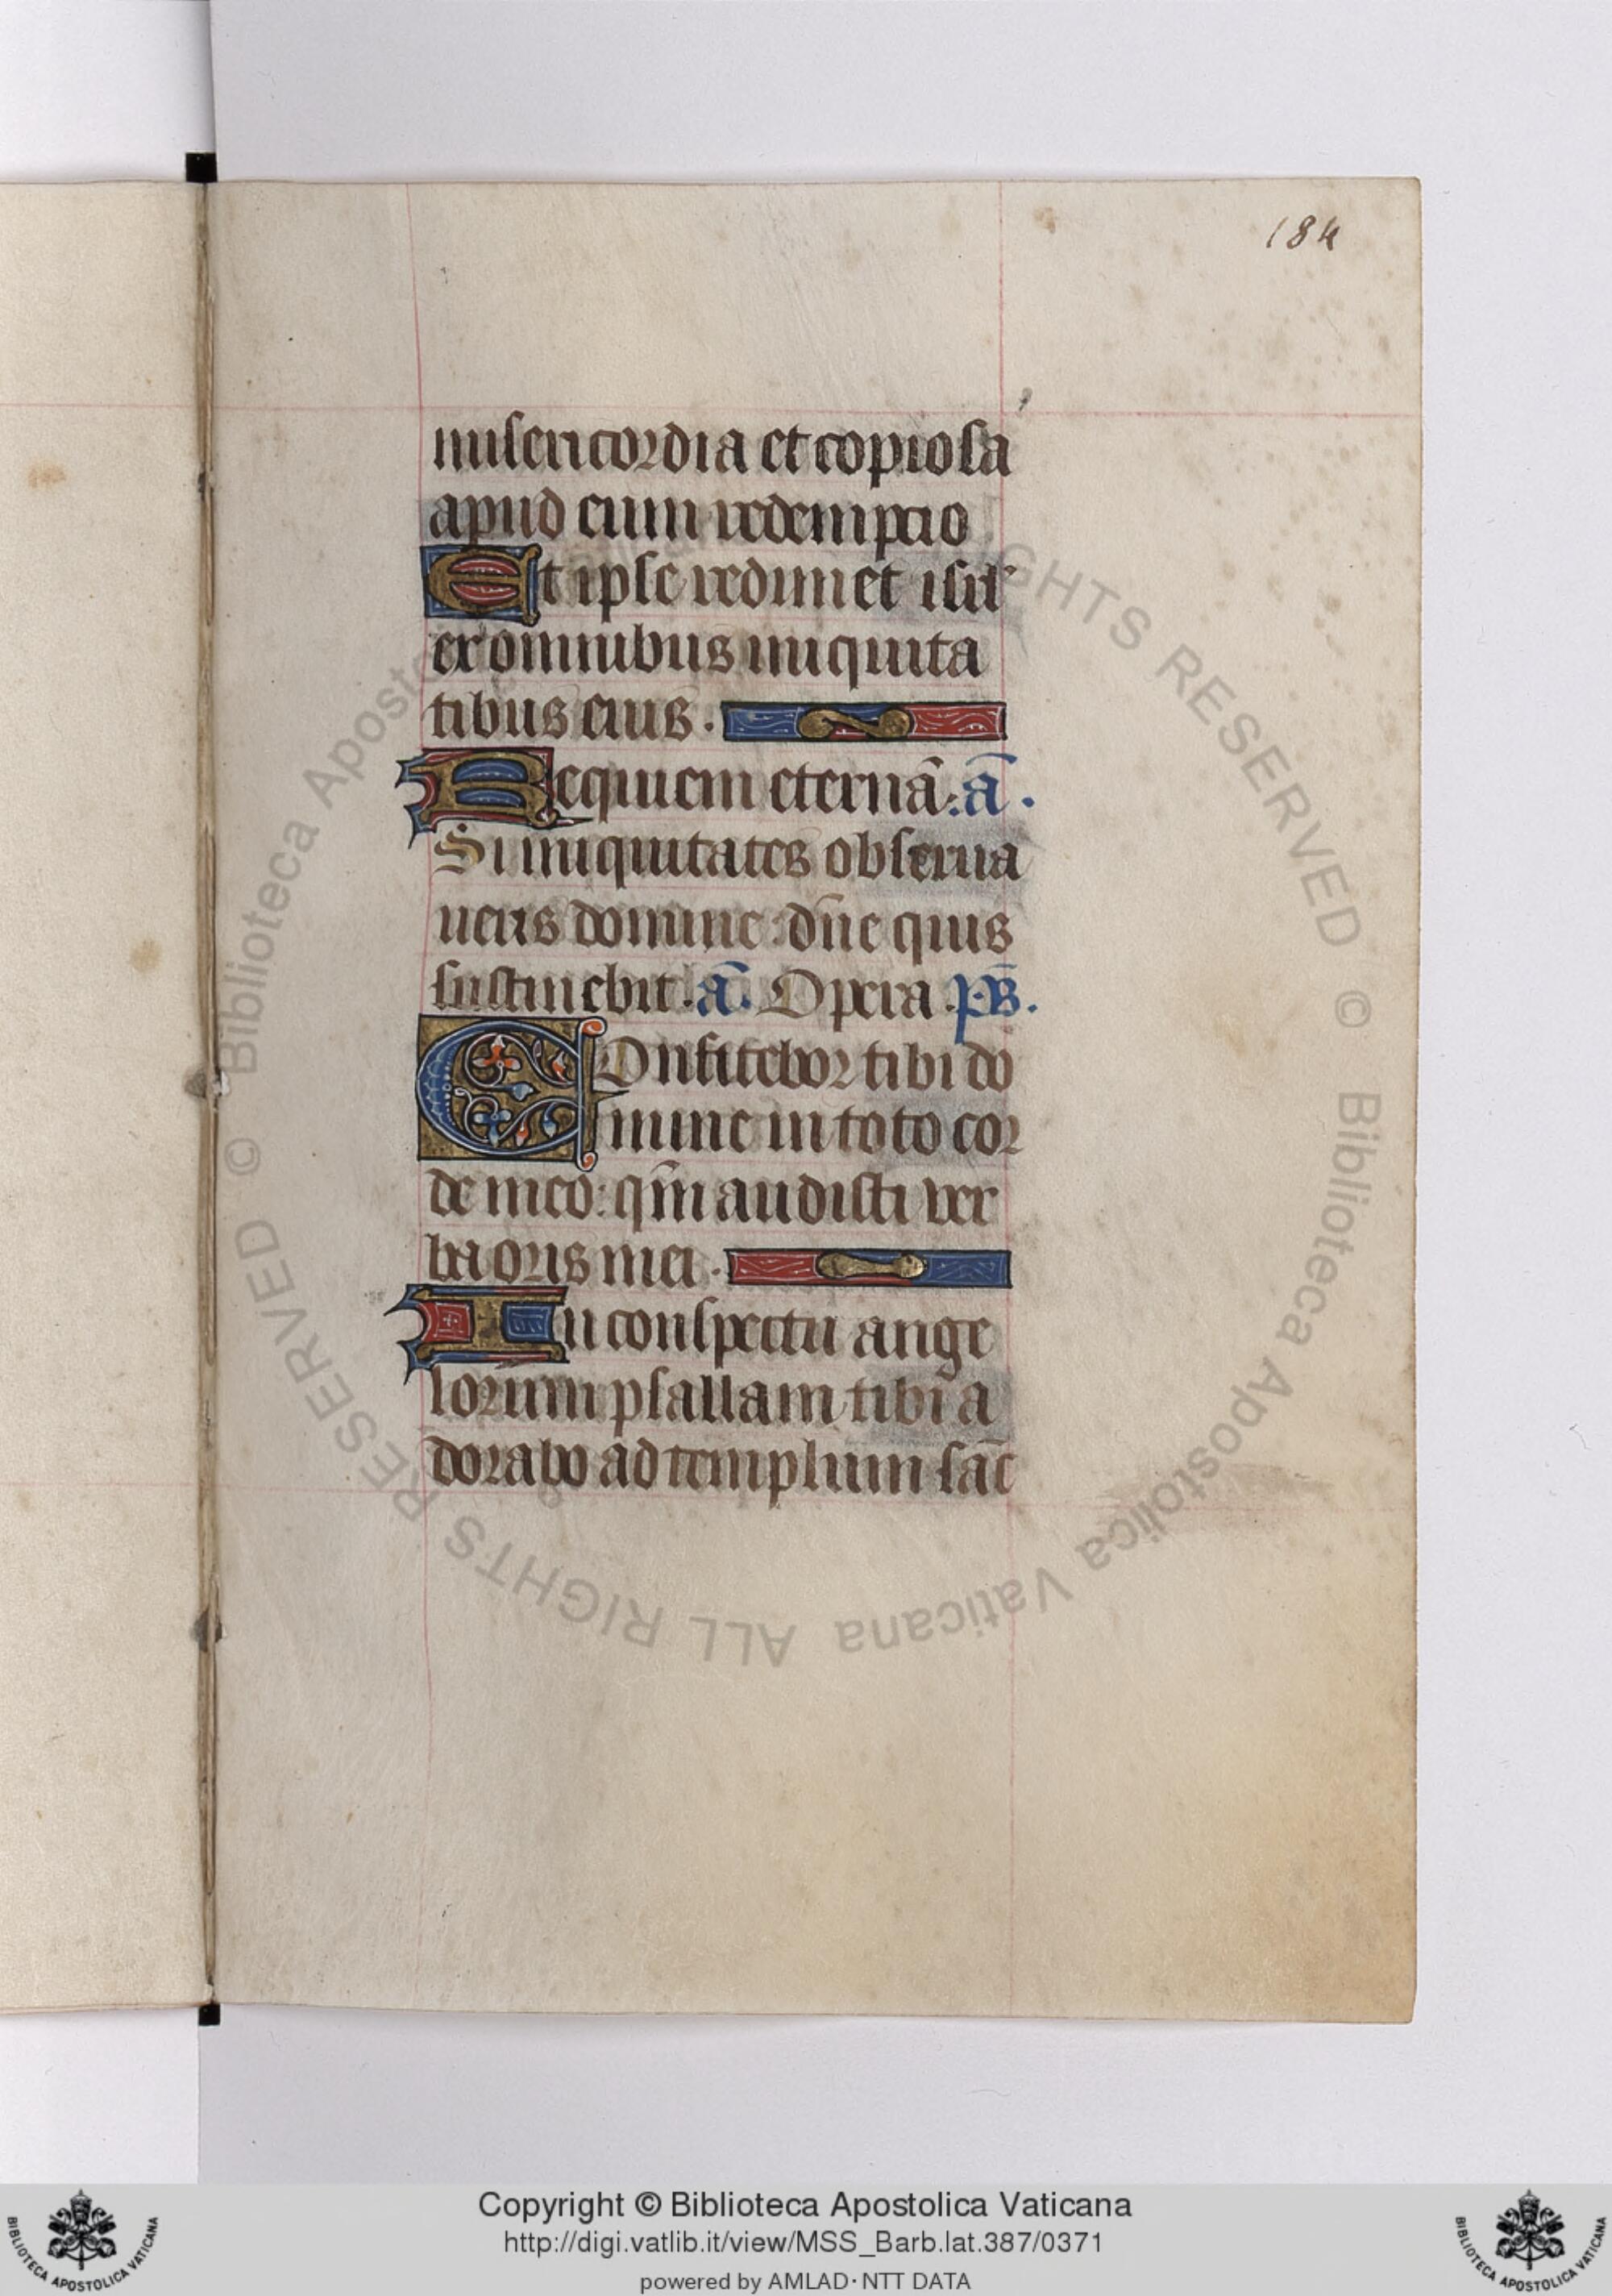 184
misericordia et copiosa
apud eum redempcio
Et ipse redimet isrl'
ex omnibus iniquita
tibus eius.
Requiem eternā. ā.
Si iniquitates obserua
ueris domine: dn̄e quis
sustinebit. ā. Opera. p̄s.
Confitebor tibi do
mine in toto cor
de meo: qm̄ audisti ver
ba oris mei.
In conspectu ange
lorum psallam tibi a
dorabo ad templum sāc
© Biblioteca Apostolica Vaticana ALL RIGHTS RESERVED © Biblioteca Apostolica Vaticana ALL RIGHTS RESERVED
Copyright © Biblioteca Apostolica Vaticana
http://digi.vatlib.it/view/MSS_Barb.lat.387/0371
powered by AMLAD·NTT DATA
BIBLIOTECA APOSTOLICA VATICANA
BIBLIOTECA APOSTOLICA VATICANA